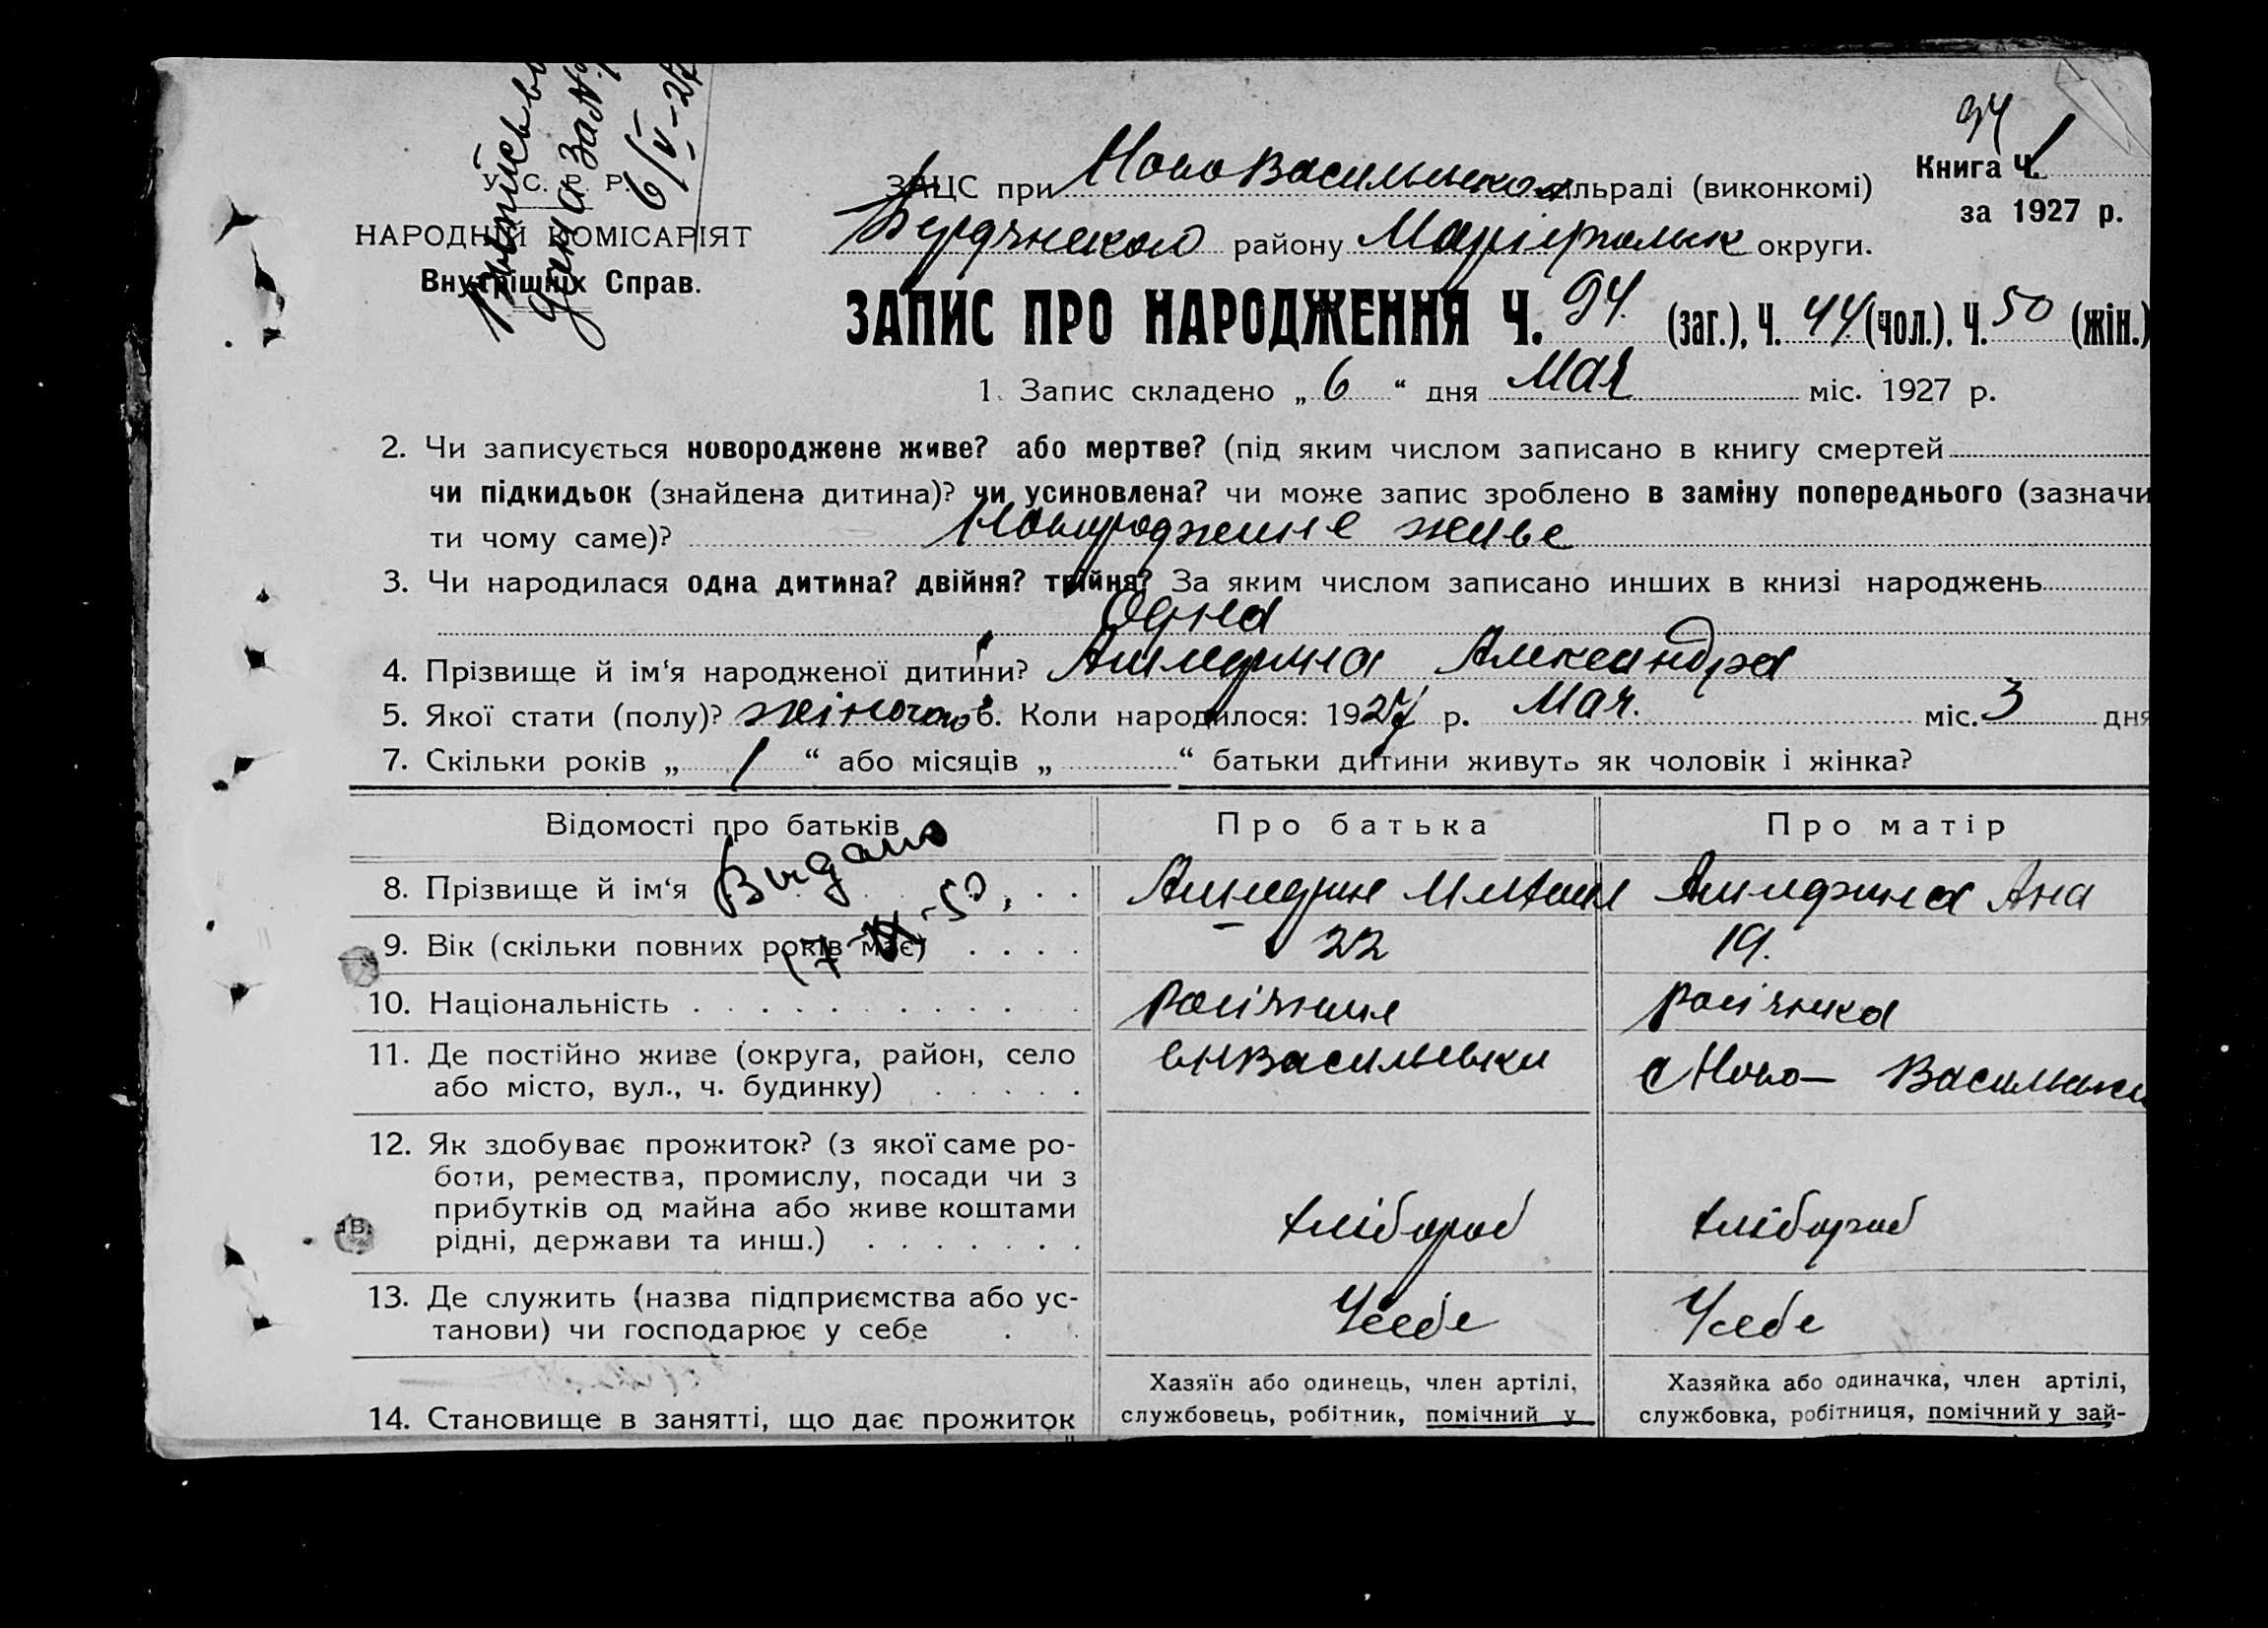 Выпись
дана за №
6/V-27
У. С. Р. Р.
НАРОДНИЙ КОМІСАРІЯТ
Внутрішніх Справ.
94
Книга Ч. 1
за 1927 р.
ЗАЦС при Ново Васильевской сільраді (виконкомі)
Бердянского району Маріупольск округи.
ЗАПИС ПРО НАРОДЖЕННЯ Ч. 94. (заг.), Ч. 44 (чол.), Ч. 50 (жін.)
1. Запис складено „ 6 “ дня Мая міс. 1927 р.
2. Чи записується новороджене живе? або мертве? (під яким числом записано в книгу смертей
чи підкидьок (знайдена дитина)? чи усиновлена? чи може запис зроблено в заміну попереднього (зазначи
ти чому саме)? Новородженне живе
3. Чи народилася одна дитина? двійня? трійня? За яким числом записано инших в книзі народжень
Одна
4. Прізвище й ім‘я народженої дитини? Александра
5. Якої стати (полу)? жіночого 6. Коли народилося: 1927 р. Мая. міс. 3 дня
7. Скільки років „ 1 “ або місяців „ “ батьки дитини живуть як чоловік і жінка?
Відомості про батьків
Про батька
Про матір
Видано
8. Прізвище й ім‘я
Ана
9. Вік (скільки повних років має)
22
19.
10. Національність
росіянин
росіянка
11. Де постійно живе (округа, район, село
або місто, вул., ч. будинку)
с Н Васильевки
с Ново- Васильевки
12. Як здобуває прожиток? (з якої саме ро-
боти, ремества, промислу, посади чи з
прибутків од майна або живе коштами
рідні, держави та инш.)
хлібороб
хлібороб
13. Де служить (назва підприємства або ус-
танови) чи господарює у себе
У себе
У себе
14. Становище в занятті, що дає прожиток
Хазяїн або одинець, член артілі,
службовець, робітник, помічний у
Хазяйка або одиначка, член артілі,
службовка, робітниця, помічний у зай-